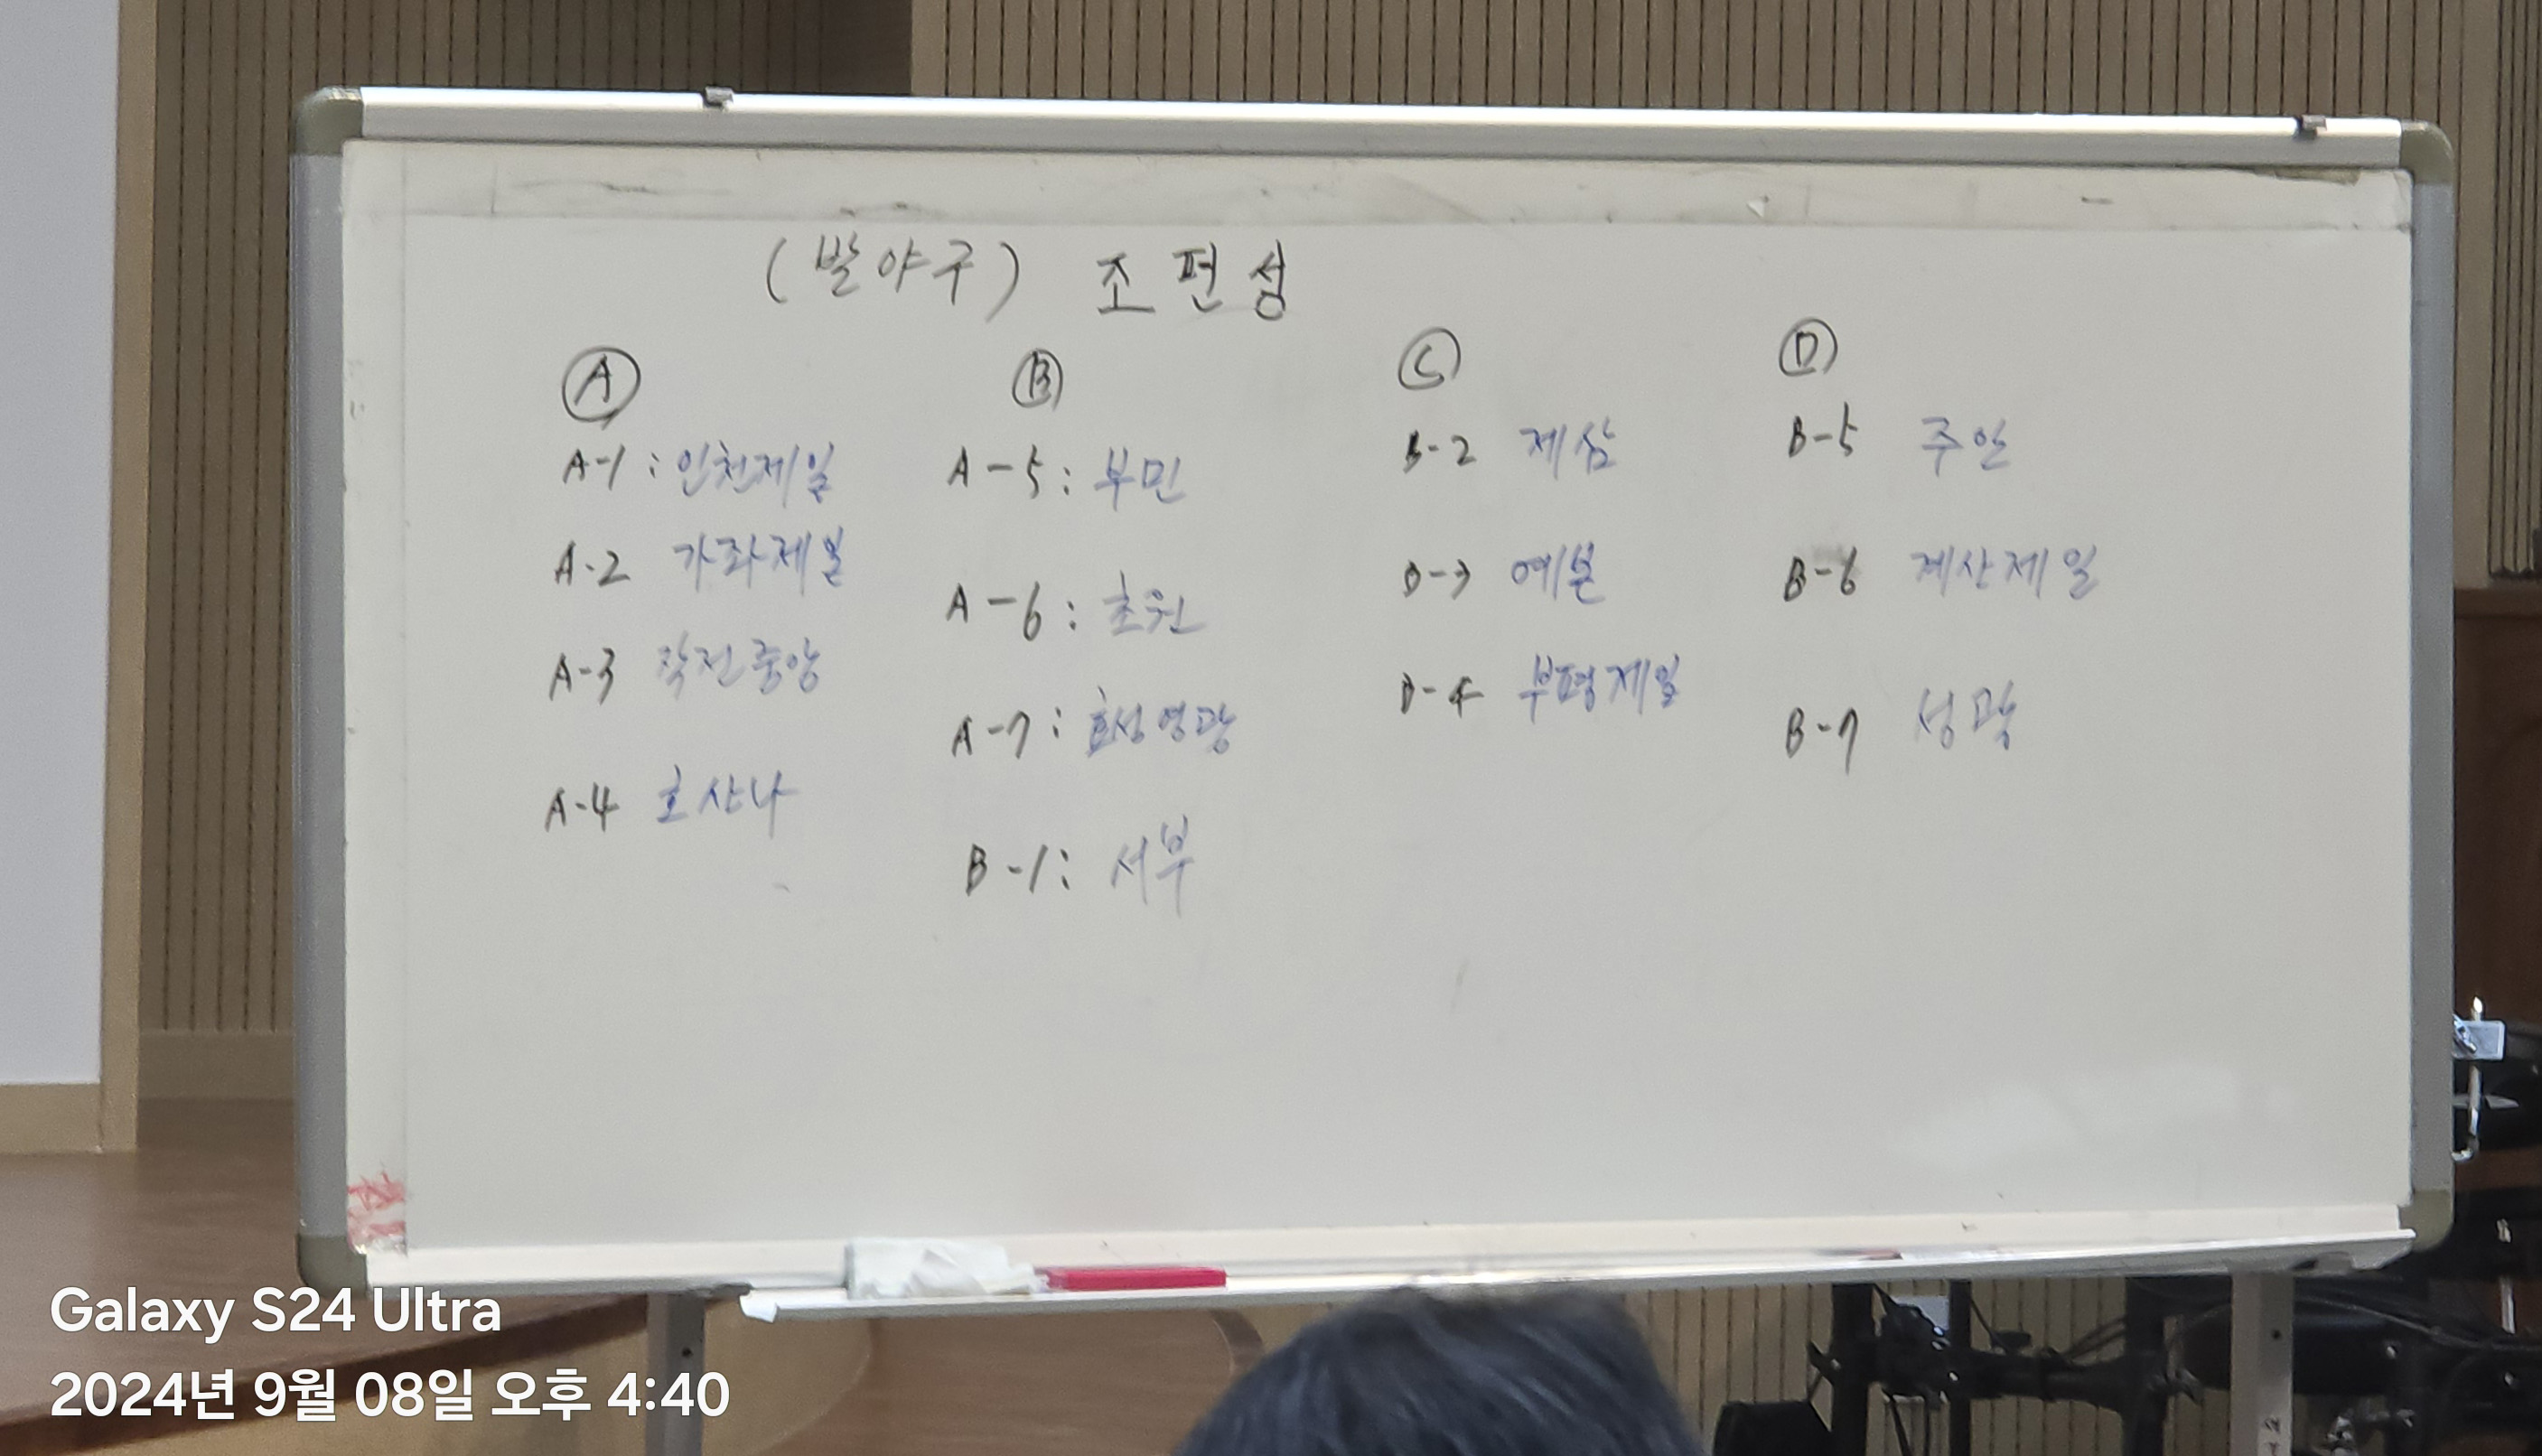 (발야구) 조편성
Ⓐ
A-1 : 인천제일
A-2 가좌제일
A-3 작전중앙
A-4 호산나
Ⓑ
A-5 : 부민
A-6 : 초원
A-7 : 효성영광
B-1 : 서부
Ⓒ
B-2 제삼
B-3 예본
B-4 부평제일
Ⓓ
B-5 주안
B-6 계산제일
B-7 성광
Galaxy S24 Ultra
2024년 9월 08일 오후 4:40